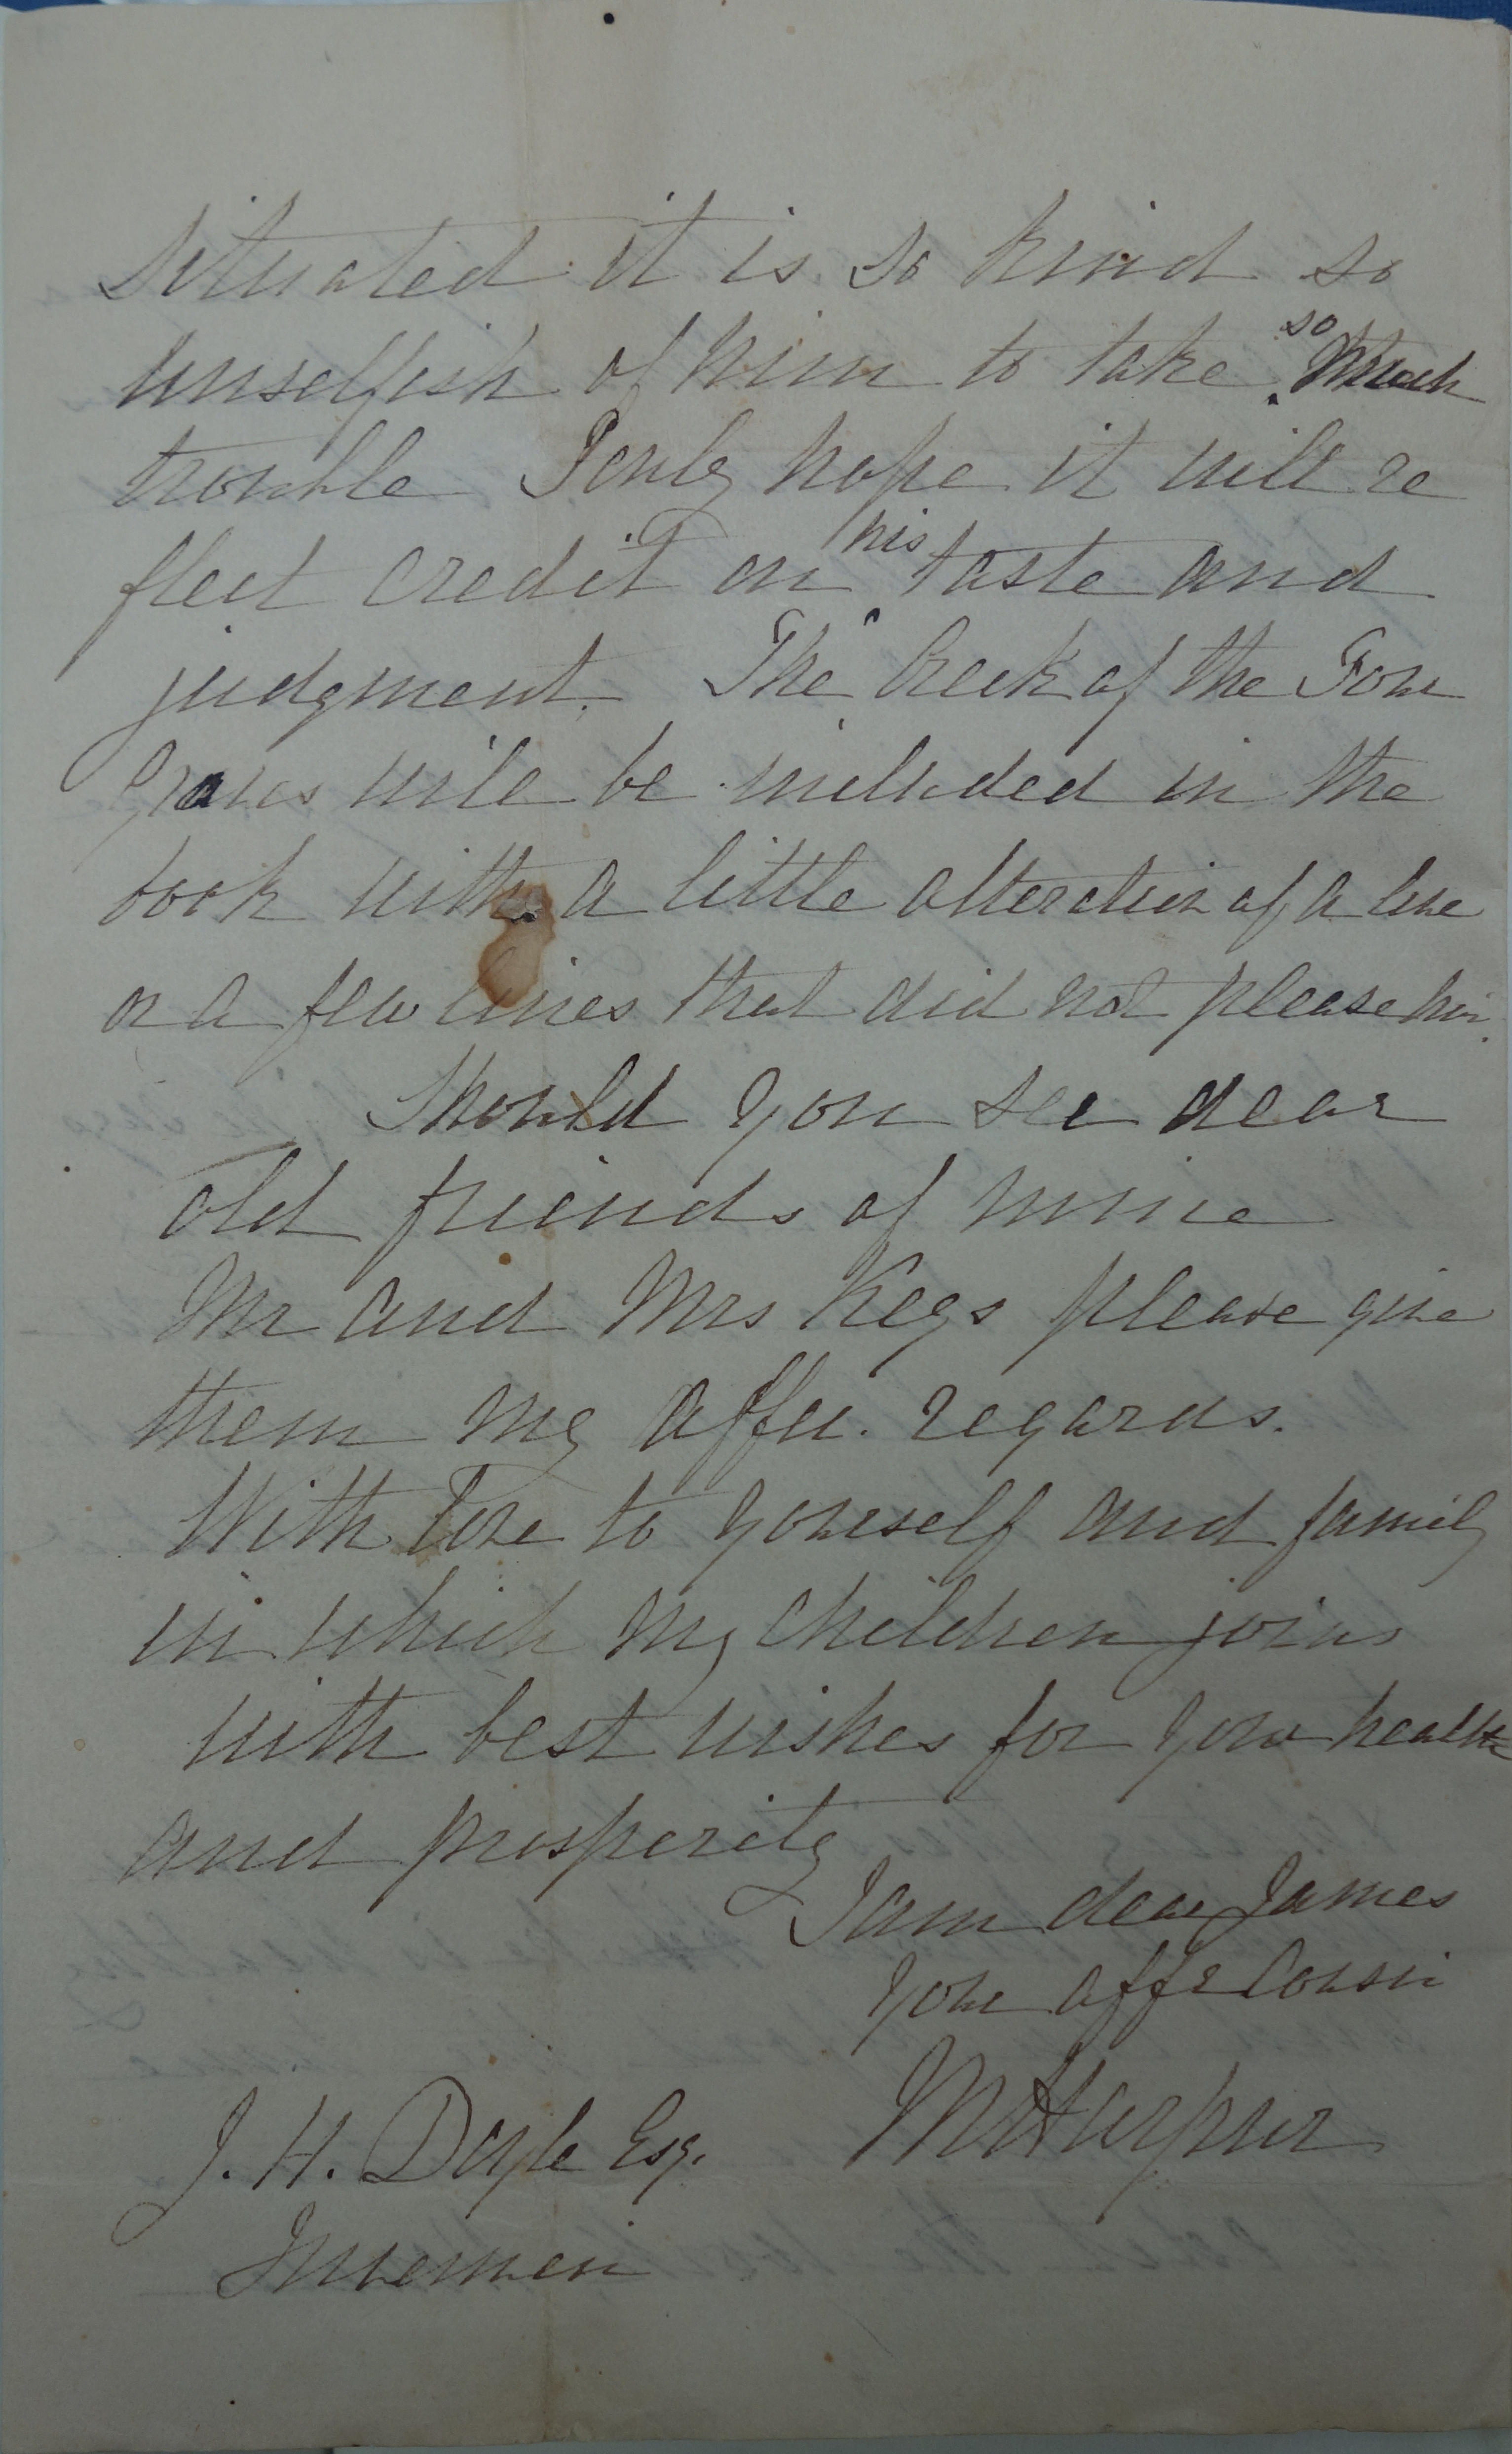 situated it is so kind so
unselfish of him to take so much
trouble I only hope it will re
flect credit on his taste and
judgment. The Creek of the Four
Graves will be included in the
book with a little alteration of a line
or a few lines that did not please him.
Should you see dear
old friends of mine
Mr and Mrs Keys please give
them my affec. regards.
With love to yourself and family
in which my children joins
with best wishes for your health
and prosperity
I am dear James
your affe Cousin
M Harpur
J. H. Doyle Esq.
Invermein